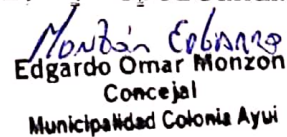 Monzón Edgardo
Edgardo Omar Monzon
Concejal
Municipalidad Colonia Ayui